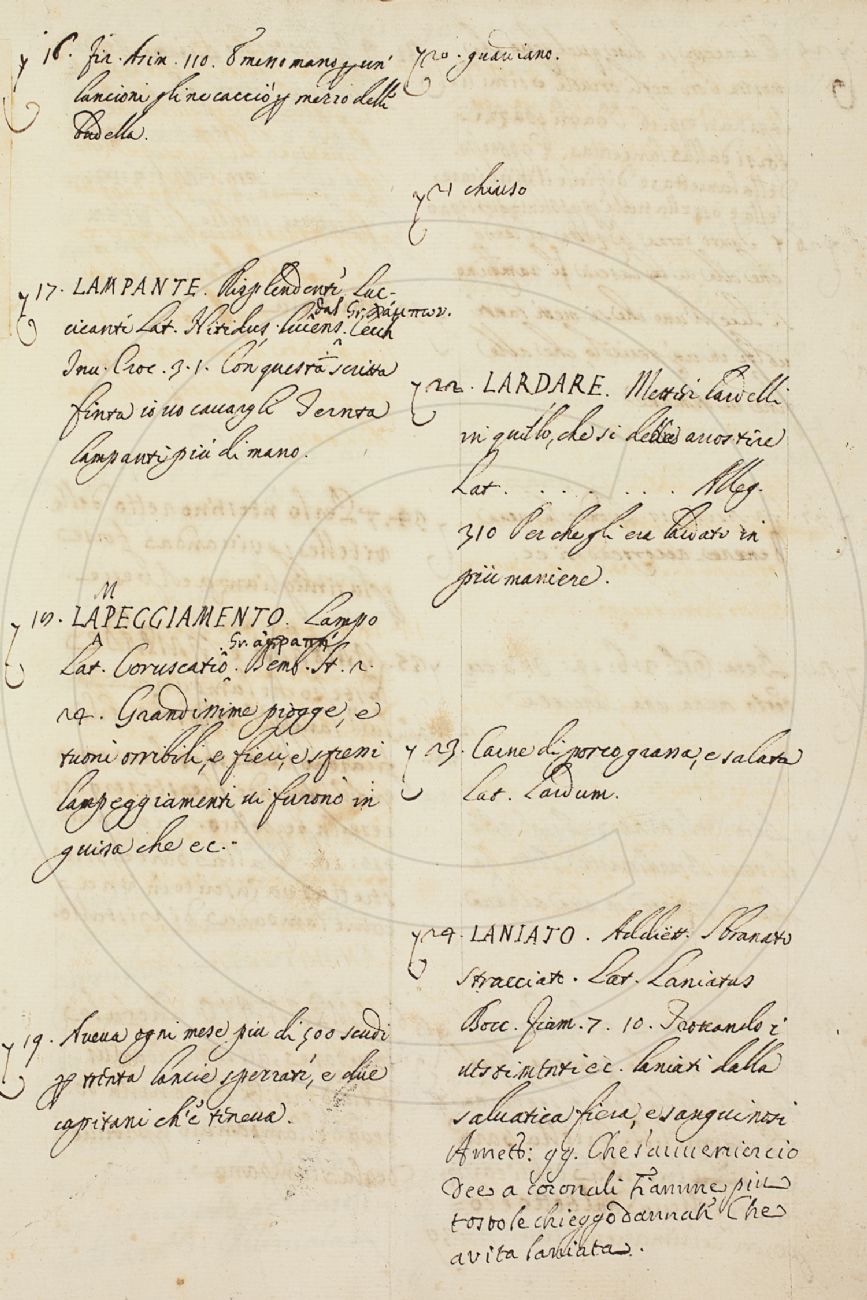 16. Fir. Asin. 110. E meno mano p un'
lancioni gli ne cacciò p mezzo delle
budella.
17. LAMPANTE. Risplendente, Luc-
dal Gr. λάμπων.
cicante Lat. Nitidus, lucens. Cecch
Inu. Croc. 3. 1. Con questa scritta
finta io uo cauargli Trenta
lampanti più di mano.
M
18. LAPEGGIAMENTO. Lampo
Gr. ἀστραπή
Lat. Coruscatio. Bemb. St. 2.
24. Grandissime piogge, e
tuoni orribili, e fieri, e spessi
lampeggiamenti ui furono in
guisa che ec.
19. Aueua ogni mese più di 500 scudi
p trenta lancie spezzate, e due
capitani ch'e' teneua.
20. guardiano.
21 chiuso
22. LARDARE. Mettere lardelli
in quello, che si dee arrostire
Lat. . . . . . . . Alleg.
310 Perche gli era lardato in
più maniere.
23. Carne di porco grassa, e salata
Lat. Lardum.
24. LANIATO. Addiett. Sbranato
stracciato. Lat. Laniatus
Bocc. Fiam. 7. 10. Trouando i
uestimenti ec. laniati dalla
saluatica fiera, e sanguinosi
Amet. 99. Che
Dee a fiamme più
tosto le chieggo dannati Che
a uita laniata.